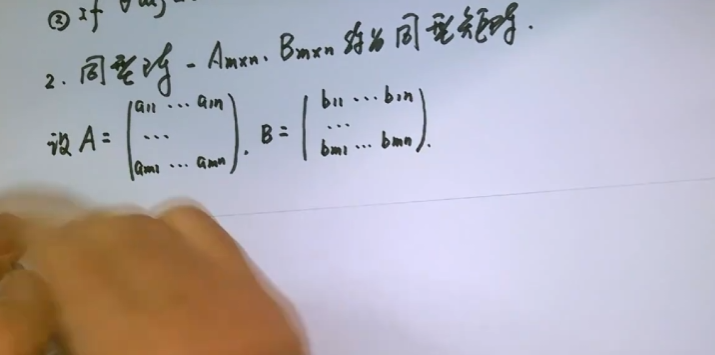 ② If ∀ aij
2. 同型阵 - Am×n、Bm×n 称为同型矩阵.
设 A = (a11 ··· a1n ··· am1 ··· amn). B = (b11 ··· b1n ··· bm1 ··· bmn).